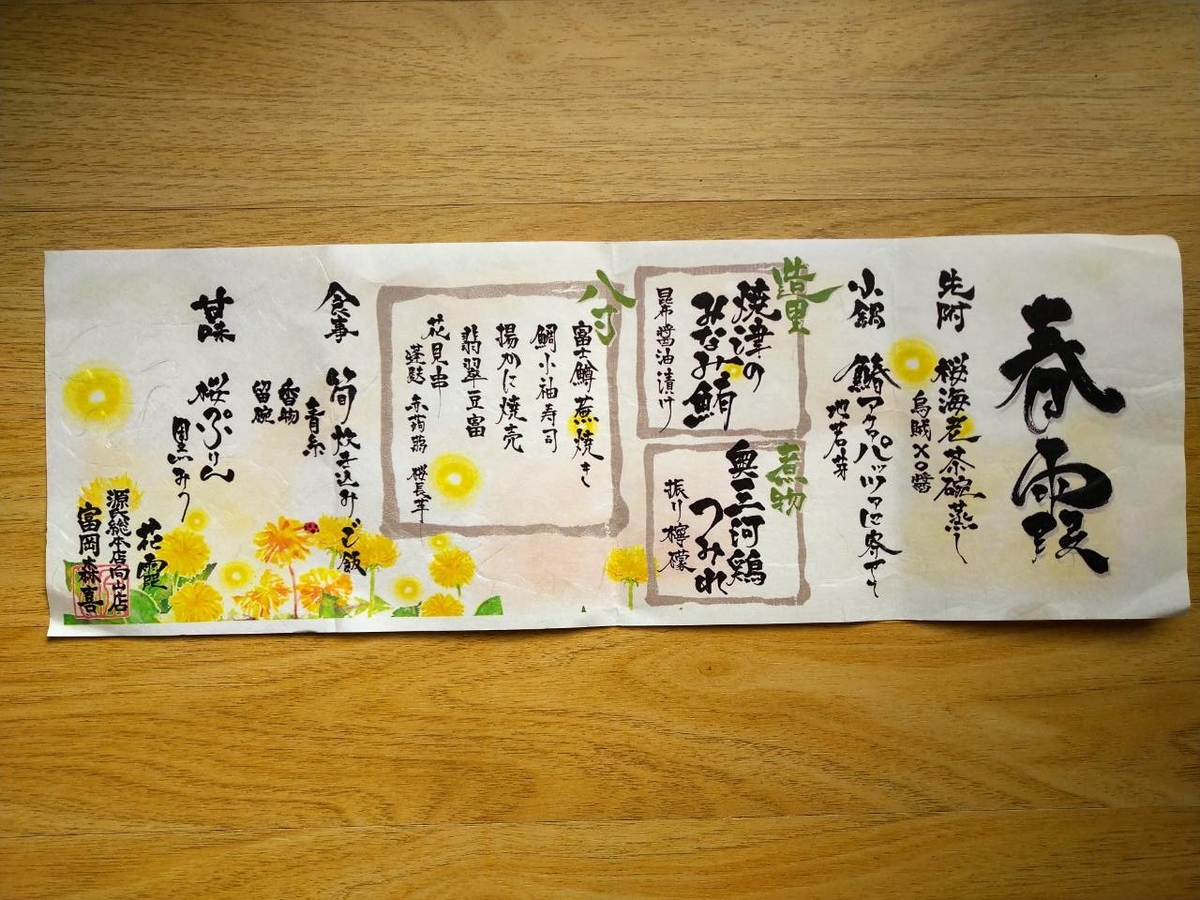 春霞
先附
桜海老茶碗蒸し
烏賊XO醬
小鍋
鰆アクアパッツァ仕立て
地若芽
造里
焼津の
みなみ鮪
昆布醤油漬け
煮物
奥三河鶏
つみれ
振り檸檬
八寸
富士鱒蕪焼き
鯛小袖寿司
揚かに焼売
翡翠豆富
花見串
蓬麩 赤蒟蒻 桜長芋
食事
筍炊き込みご飯
青糸
香物
留碗
甘味
桜ぷりん
黒みつ
花霞
源氏総本店向山店
富岡森喜